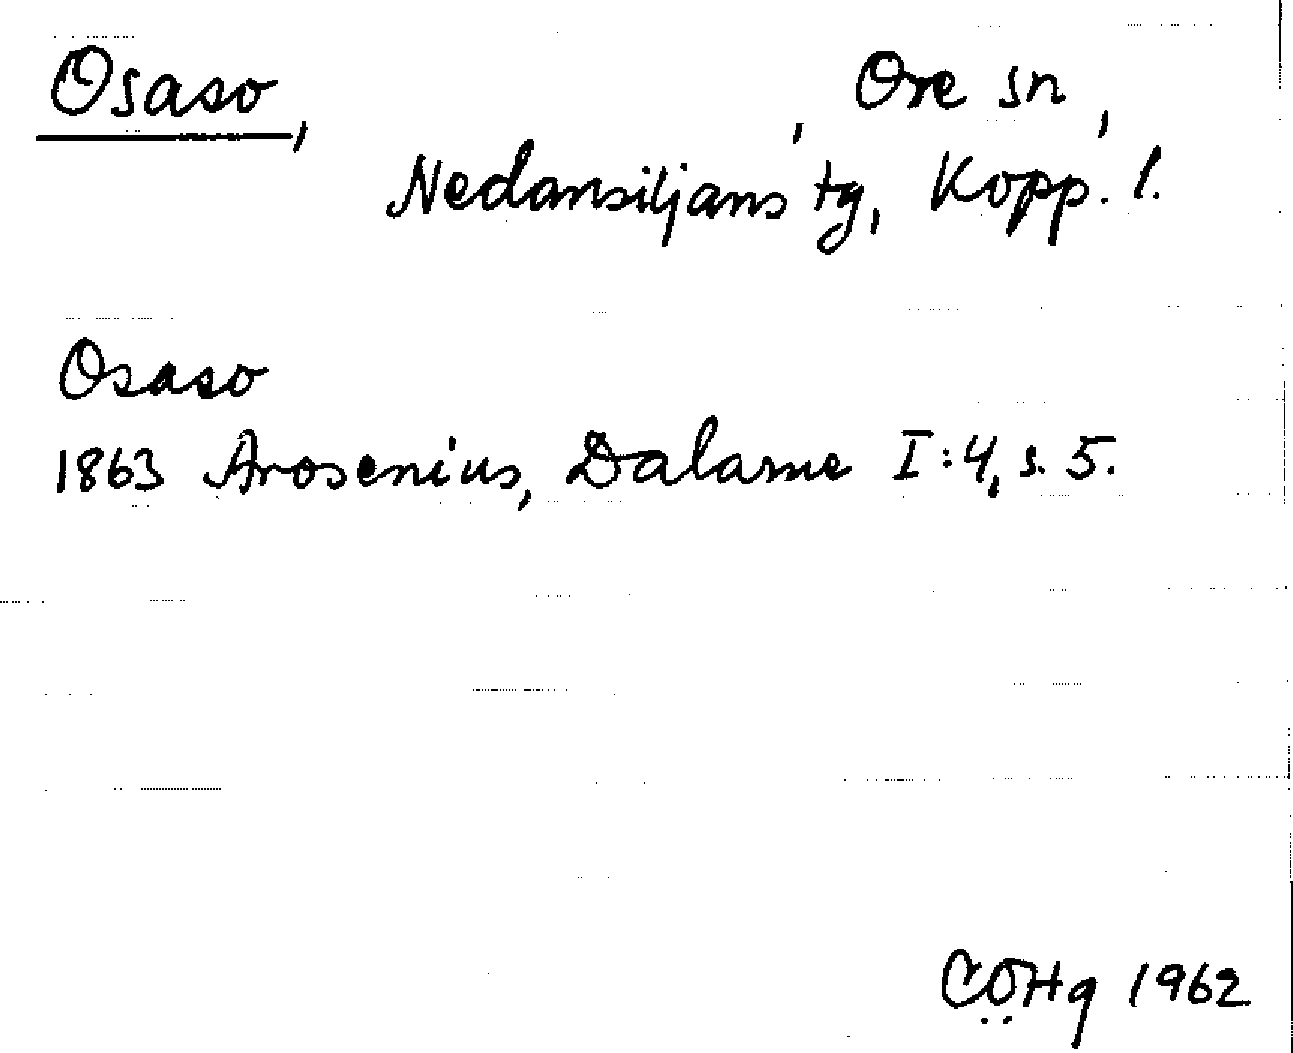 Osaso, , Ore sn,
Nedansiljans tg, Kopp. l.
Osaso
1863 Arosenius, Dalarne I:4, s. 5.
CÖHg 1962